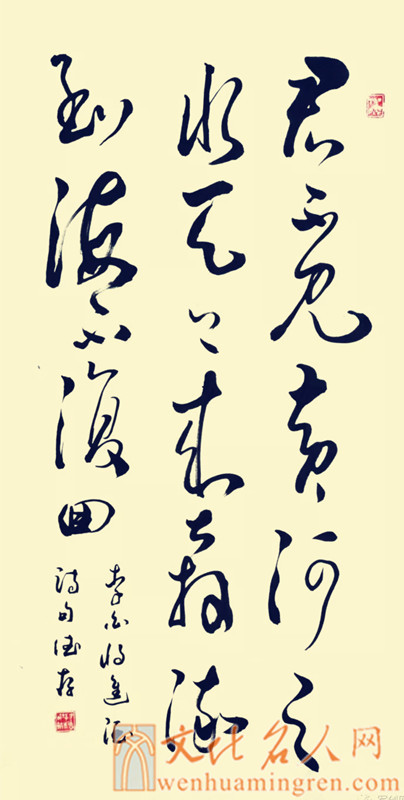 君不見黃河之
水天上來奔流
到海不復回
李白將進酒
詩句德存
文化名人网
wenhuamingren.com